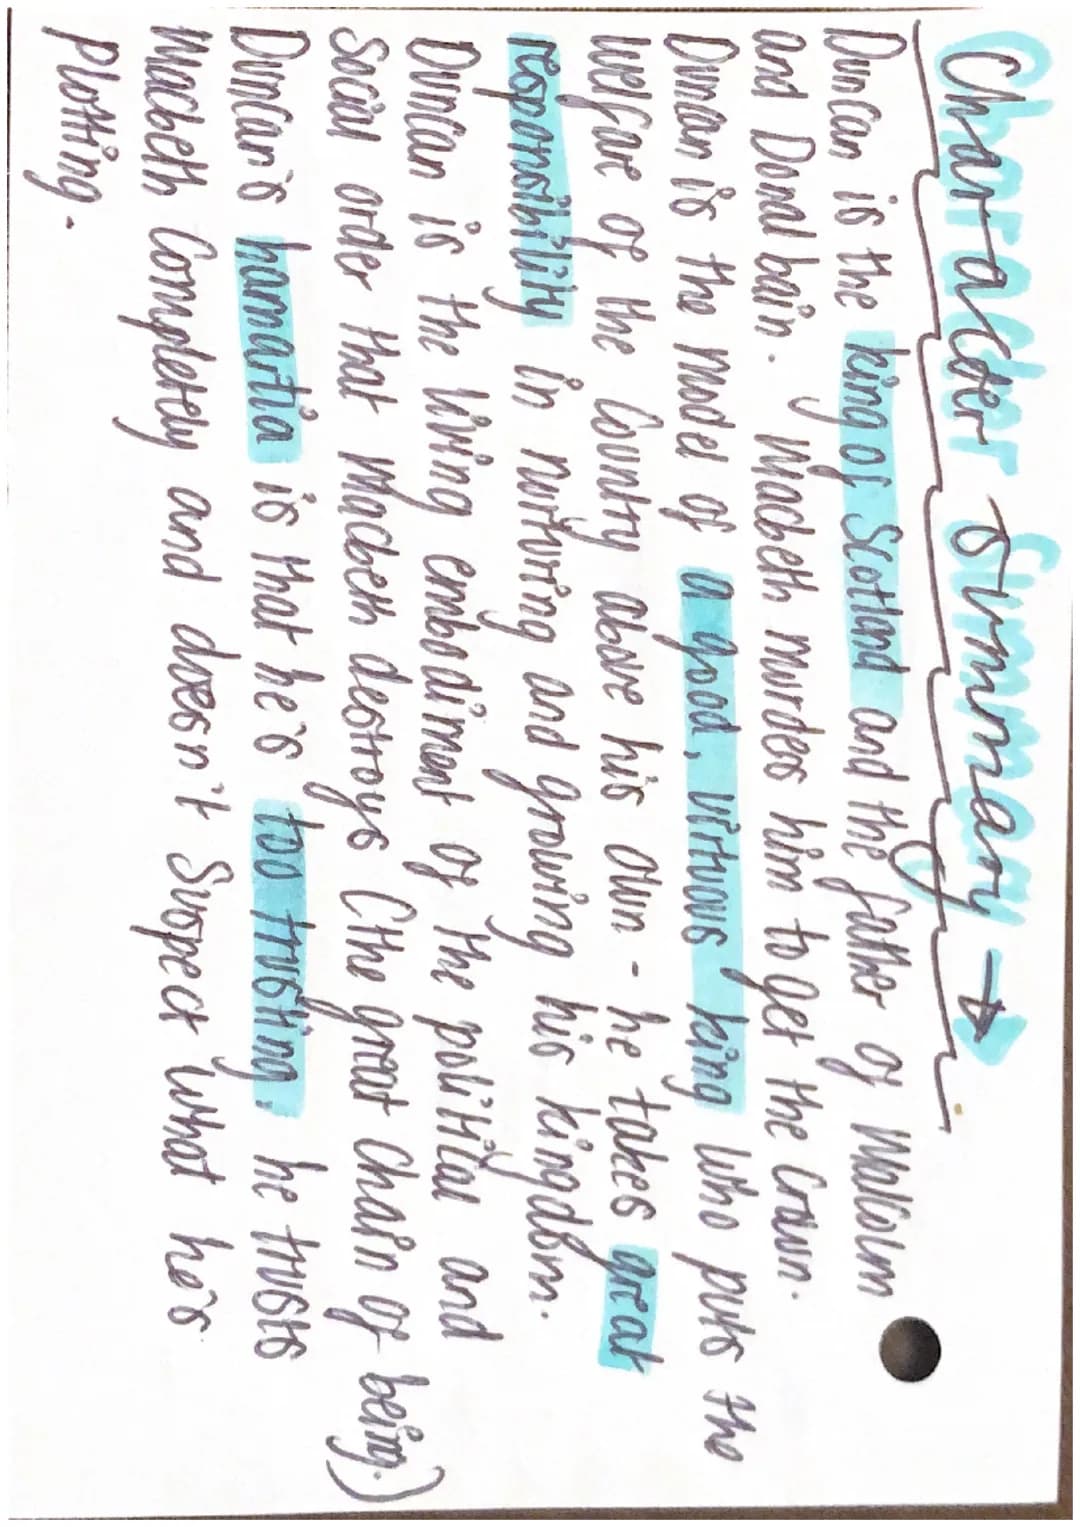 Character Summary →
Duncan is the king of Scotland and the father of Malcolm
and Donalbain. Macbeth murders him to get the Crown.
Duncan is the model of a good, virtuous king who puts the
welfare of the Country above his own - he takes great
responsibility in nurturing and growing his kingdom.
Duncan is the living embodiment of the political and
Social order that Macbeth destroys (the great chain of being.)
Duncan's hamartia is that he's too trusting. he trusts
Macbeth Completely and doesn't Suspect what he's
plotting.